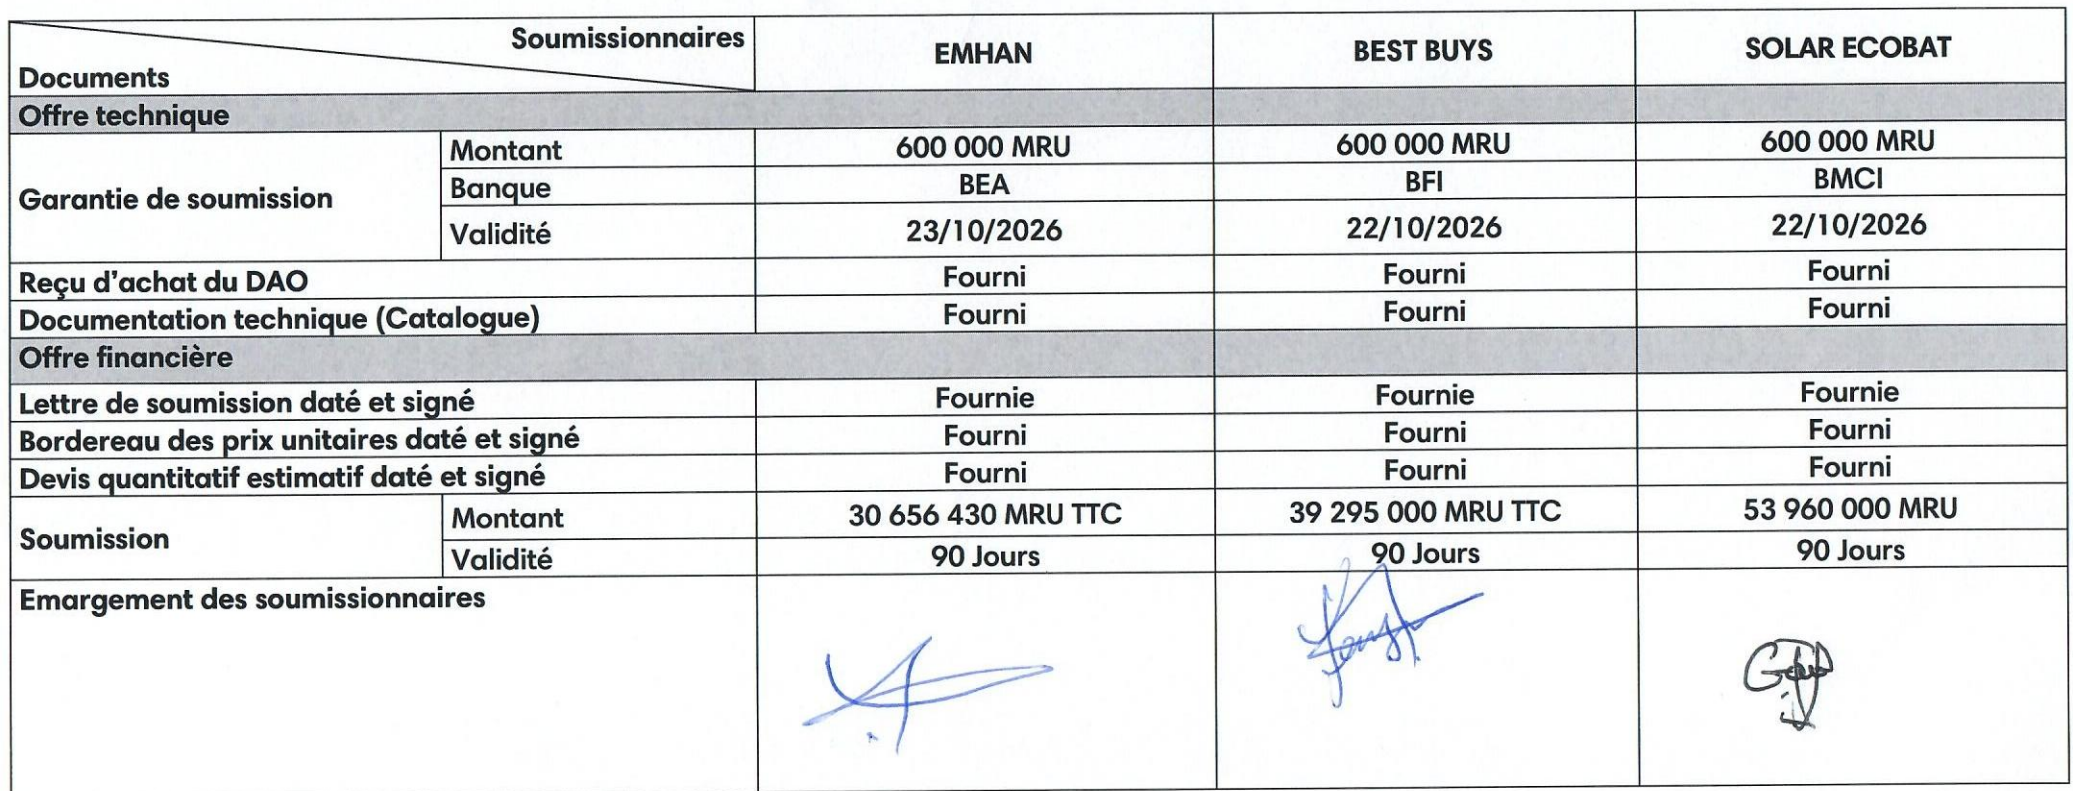 Soumissionnaires
Documents
EMHAN
BEST BUYS
SOLAR ECOBAT
Offre technique
Garantie de soumission
Montant
600 000 MRU
600 000 MRU
600 000 MRU
Banque
BEA
BFI
BMCI
Validité
23/10/2026
22/10/2026
22/10/2026
Reçu d'achat du DAO
Fourni
Fourni
Fourni
Documentation technique (Catalogue)
Fourni
Fourni
Fourni
Offre financière
Lettre de soumission daté et signé
Fournie
Fournie
Fournie
Bordereau des prix unitaires daté et signé
Fourni
Fourni
Fourni
Devis quantitatif estimatif daté et signé
Fourni
Fourni
Fourni
Soumission
Montant
30 656 430 MRU TTC
39 295 000 MRU TTC
53 960 000 MRU
Validité
90 Jours
90 Jours
90 Jours
Emargement des soumissionnaires